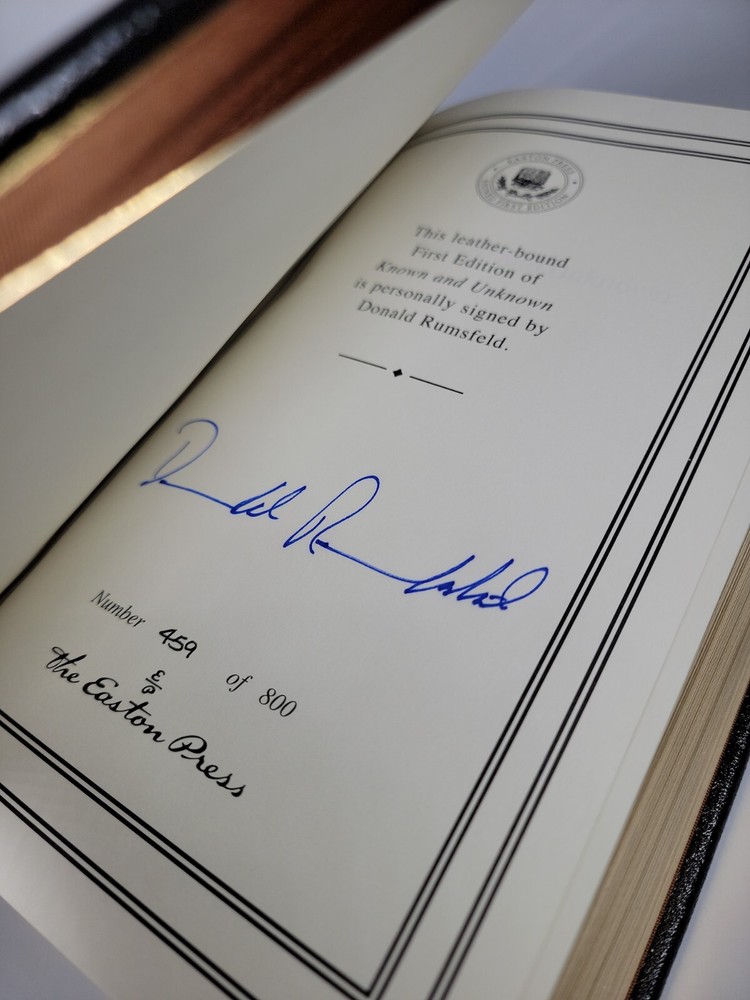 EASTON PRESS
SIGNED FIRST EDITION
This leather-bound
First Edition of
Known and Unknown
is personally signed by
Donald Rumsfeld.
Donald Rumsfeld
Number 459 of 800
E/P
The Easton Press